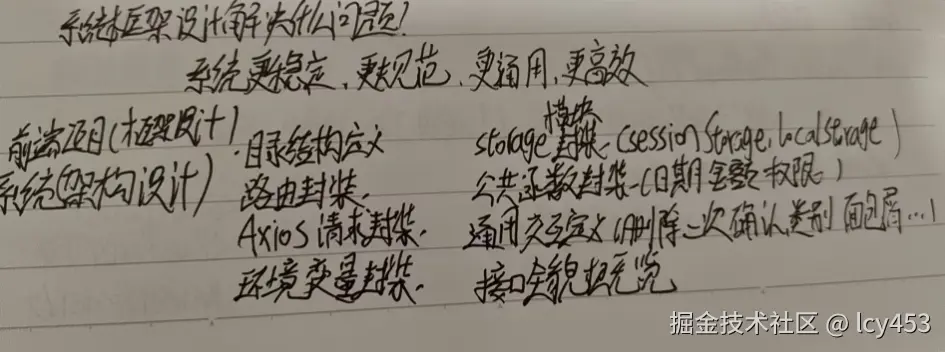 系统框架设计解决什么问题?
系统更稳定、更规范、更通用、更高效
前端项目(框架设计)
系统(架构设计)
目录结构定义
路由封装.
Axios 请求封装.
环境变量封装.
storage模块封装-(sessionStorage, localStorage)
公共函数封装-(日期 金额 权限)
通用交互定义(删除二次确认,类别 面包屑...)
接口全貌概览
掘金技术社区 @ lcy453